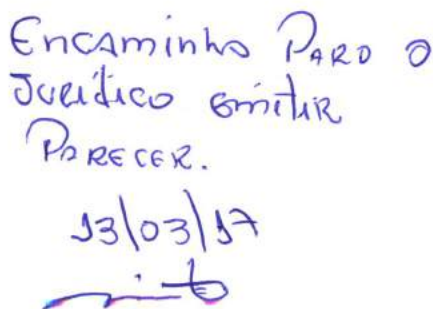 Encaminho Para o
Jurídico emitir
Parecer.
13/03/17